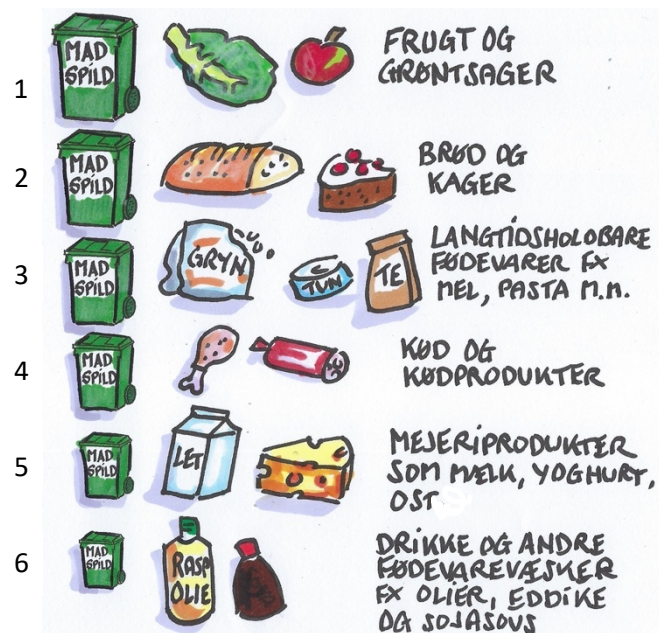 1
MAD
SPILD
FRUGT OG
GRØNTSAGER
2
MAD
SPILD
BRØD OG
KAGER
3
MAD
SPILD
GRYN
TUN
TE
LANGTIDSHOLDBARE
FØDEVARER FX
MEL, PASTA M.M.
4
MAD
SPILD
KØD OG
KØDPRODUKTER
5
MAD
SPILD
LET
MEJERIPRODUKTER
SOM MÆLK, YOGHURT,
OST
6
MAD
SPILD
RASP
OLIE
DRIKKE OG ANDRE
FØDEVAREVÆSKER
FX OLIER, EDDIKE
OG SOJASOVS